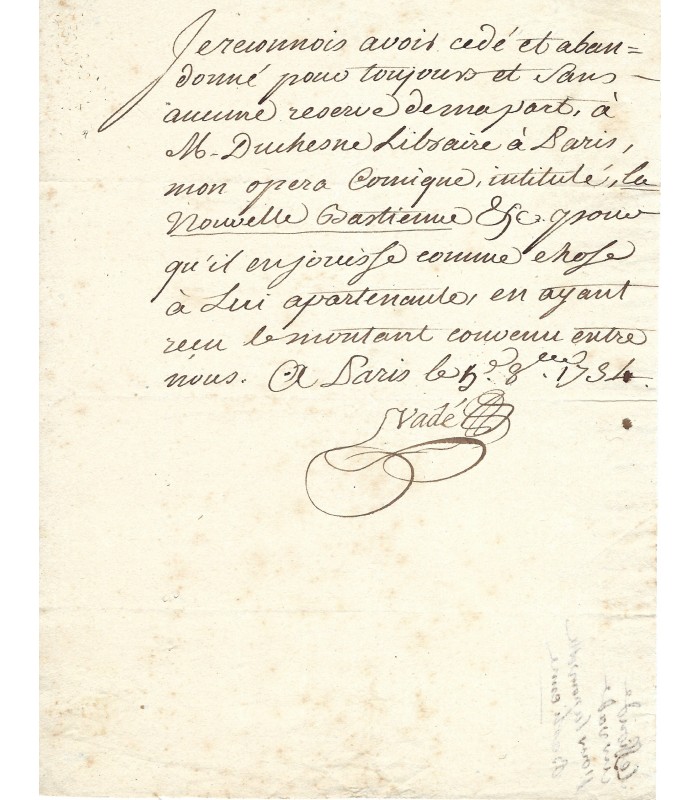 Je reconnois avoir cedé et aban=
donné pour toujours et sans
aucune reserve de ma part, à
M. Duchesne Libraire à Paris,
mon opera Comique, intitulé, la
Nouvelle Bastienne &c. pour
qu'il en jouisse comme chose
à Lui apartenante, en ayant
reçu le montant convenu entre
nous. A Paris le 8.bre 1754.
Vadé